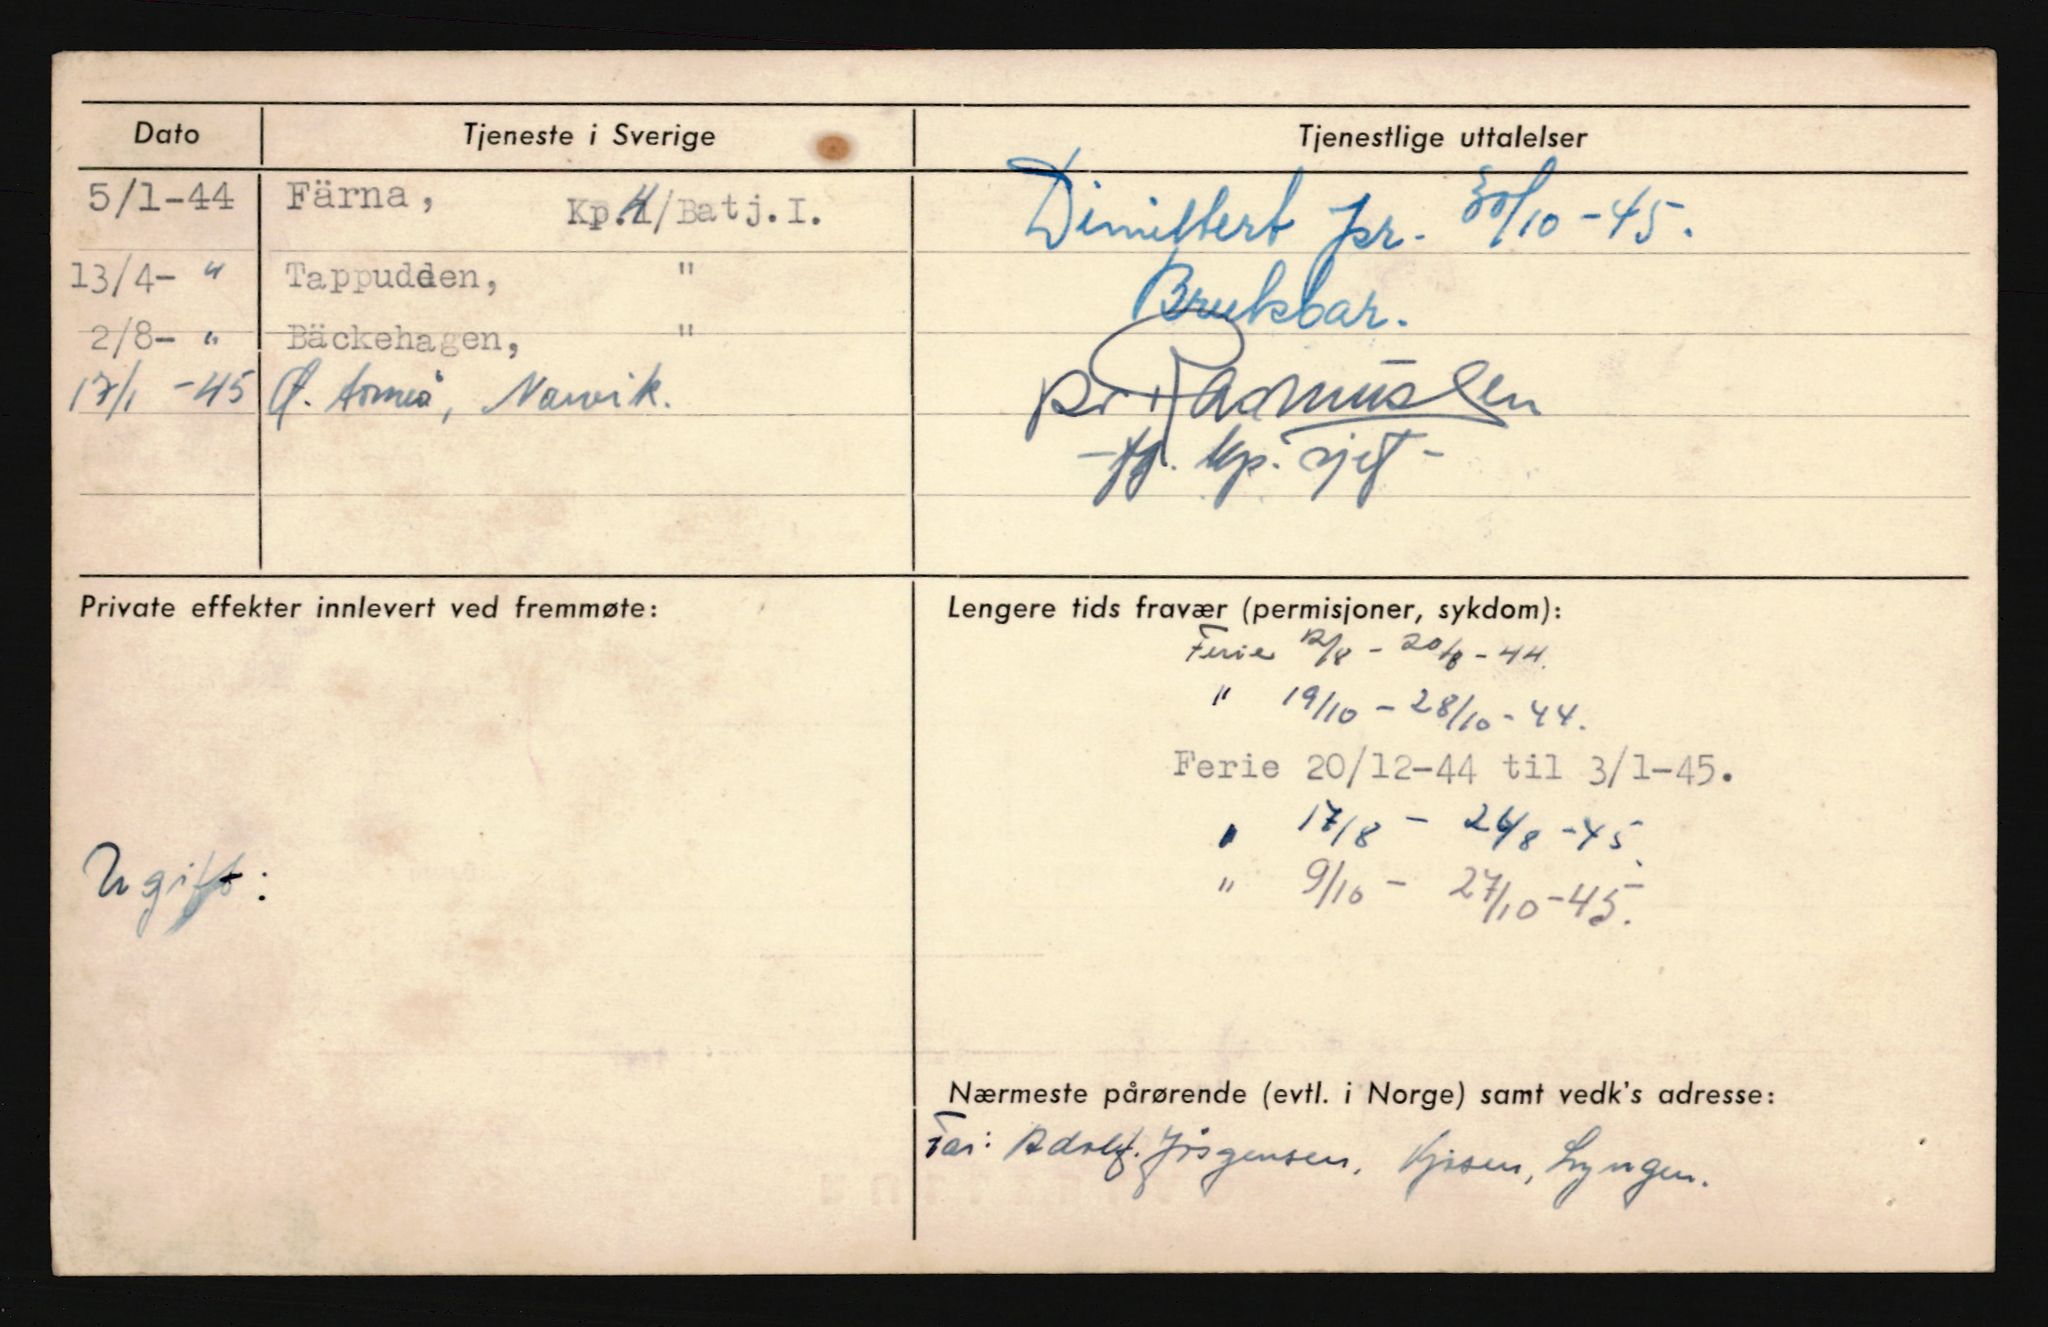 Dato
Tjeneste i Sverige
Tjenestlige uttalelser
5/1-44 Färna, Kp.4/Batj.I.
13/4- " Tappudden, "
2/8- " Bäckehagen, "
17/1 -45 Ø. Armeå, Narvik.
Dimittert pr. 30/10-45.
Brukbar.
Rasmussen
- fg. kp. sjef -
Private effekter innlevert ved fremmøte:
Ugift:
Lengere tids fravær (permisjoner, sykdom):
Ferie 12/8 - 20/8 - 44.
" 19/10 - 28/10 - 44.
Ferie 20/12-44 til 3/1-45.
" 17/8 - 26/8 -45.
" 9/10 - 27/10-45.
Nærmeste pårørende (evtl. i Norge) samt vedk's adresse:
Far: Adolf. Jørgensen, Kjosen, Lyngen.